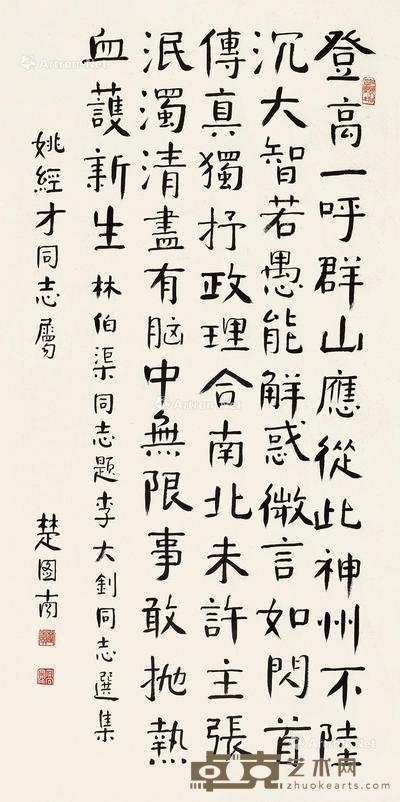 登高一呼群山應從此神州不陸
沉大智若愚能解惑微言如閃首
傳真獨抒政理合南北未許主張
泯濁清盡有脑中無限事敢抛熱
血護新生 林伯渠同志題李大釗同志選集
姚經才同志属
楚图南
Artron.Net
卓克艺术网
http://www.zhuokearts.com